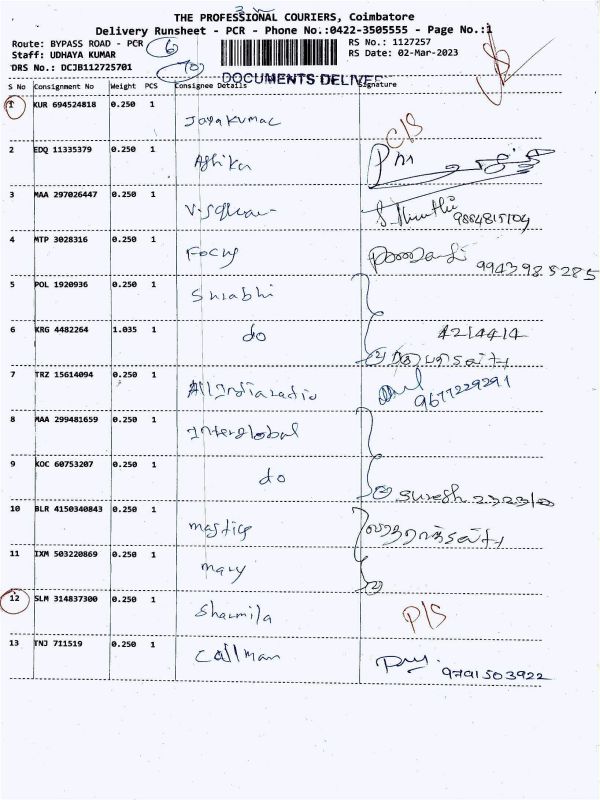 THE PROFESSIONAL COURIERS, Coimbatore
Delivery Runsheet - PCR - Phone No.:0422-3505555 - Page No.:1
Route: BYPASS ROAD - PCR 6 RS No.: 1127257
Staff: UDHAYA KUMAR RS Date: 02-Mar-2023
DRS No.: DCJB112725701 10
DOCUMENTS DELIVER
S No Consignment No Weight PCS Consignee Details Signature
1 KUR 694524818 0.250 1 Jayakumar C/S
2 EDQ 11335379 0.250 1
3 MAA 297026447 0.250 1 V-square 9884815104
4 MTP 3028316 0.250 1 Focus 9943985285
5 POL 1920936 0.250 1 Surabhi
6 KRG 4482264 1.035 1 do 4214414
7 TRZ 15614094 0.250 1 All India radio 9677229291
8 MAA 299481659 0.250 1 Interglobal
9 KOC 60753207 0.250 1 do Suresh
10 BLR 4150340843 0.250 1
11 IXM 503220869 0.250 1 mary
12 SLM 314837300 0.250 1 Sharmila P/S
13 TNJ 711519 0.250 1 Callman 9791503922